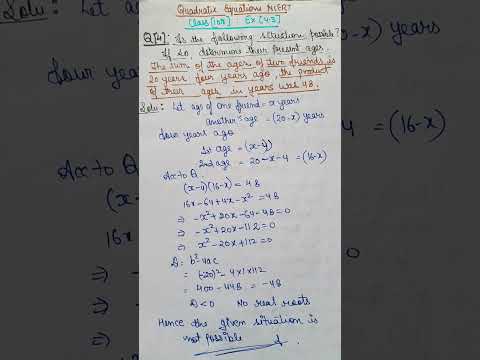 Quadratic Equations NCERT
Class [10th] Ex (4.3)
Q[4]: Is the following situation possible?
If so, determine their present ages.
The sum of the ages of two friends is
20 years. four years ago, the product
of their ages in years was 48.
Solu: Let age of one friend = x years
another's age = (20-x) years
four years ago
1st age = (x-4)
2nd age = 20-x-4 = (16-x)
A.c to Q.
(x-4)(16-x) = 48
16x-64+4x-x² = 48
⇒ -x²+20x-64-48=0
⇒ -x²+20x-112=0
⇒ x²-20x+112=0
D = b²-4ac
= (-20)²-4×1×112
= 400-448 = -48
D<0 No real roots
Hence the given situation is
not possible